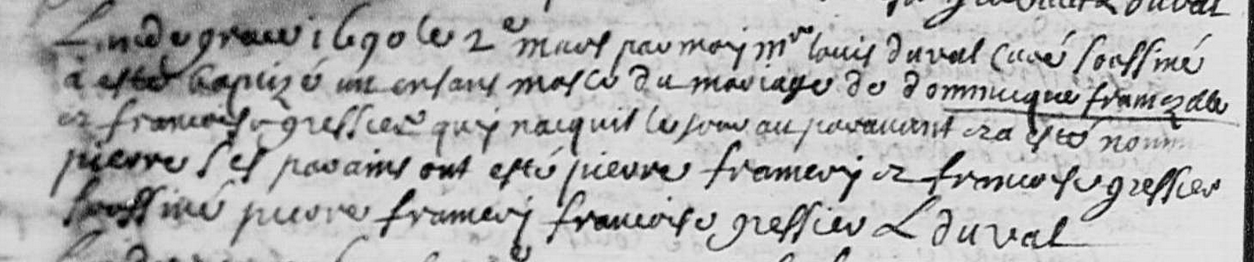 Duval
Lan de grace 1690 le 2e mars par moy mre louis duval Curé soussiné
a esté baptizé un enfant masle du mariage de dominicque framezelle
et francoise gressier quy nacquit le jour au paravant et a esté nommé
pierre ses parains ont esté pierre framery et francoise gressier
soussiné pierre framery francoise gressier L duval